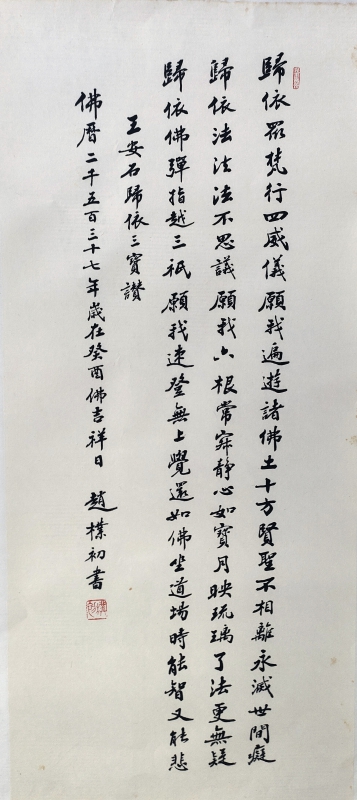 歸依眾梵行四威儀願我遍遊諸佛土十方賢聖不相離永滅世間癡
歸依法法法不思議願我六根常寂靜心如寶月映琉璃了法更無疑
歸依佛彈指越三祇願我速登無上覺還如佛坐道場時能智又能悲
王安石歸依三寶讚
佛曆二千五百三十七年歲在癸酉佛吉祥日 趙樸初書